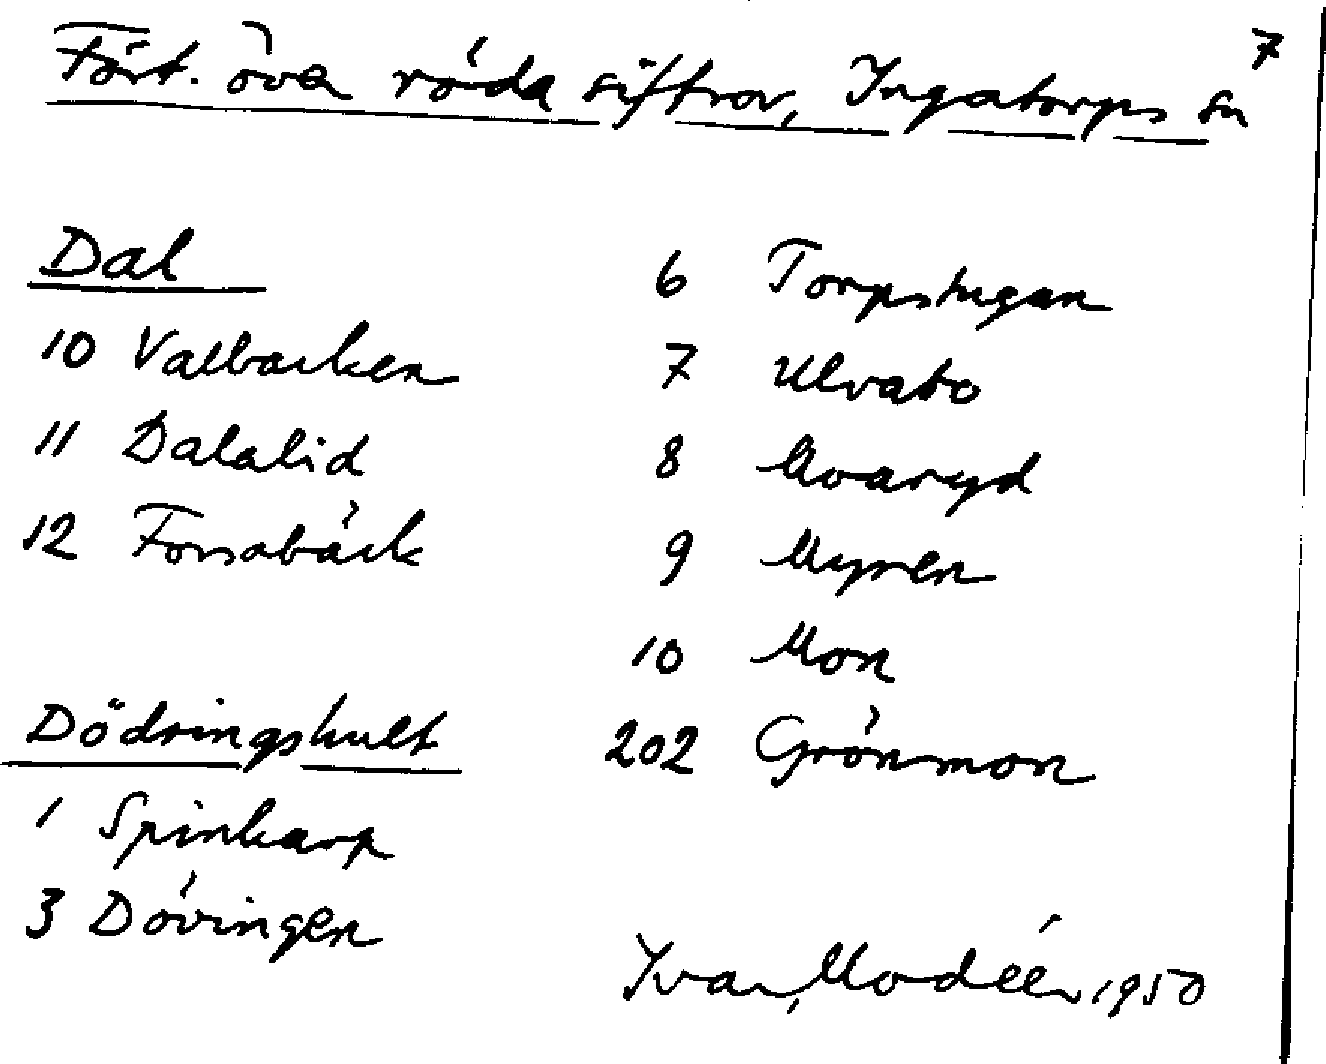 7
Fört. över röda siffror, Ingatorps sn
Dal
10 Valbacken
11 Dalalid
12 Forsabäck
Dödringshult
1 Spinkarp
3 Dövingen
6 Torpstugan
7 Ulvabo
8 Moaryd
9 Myren
10 Mon
202 Grönmon
Ivar Modéer 1950